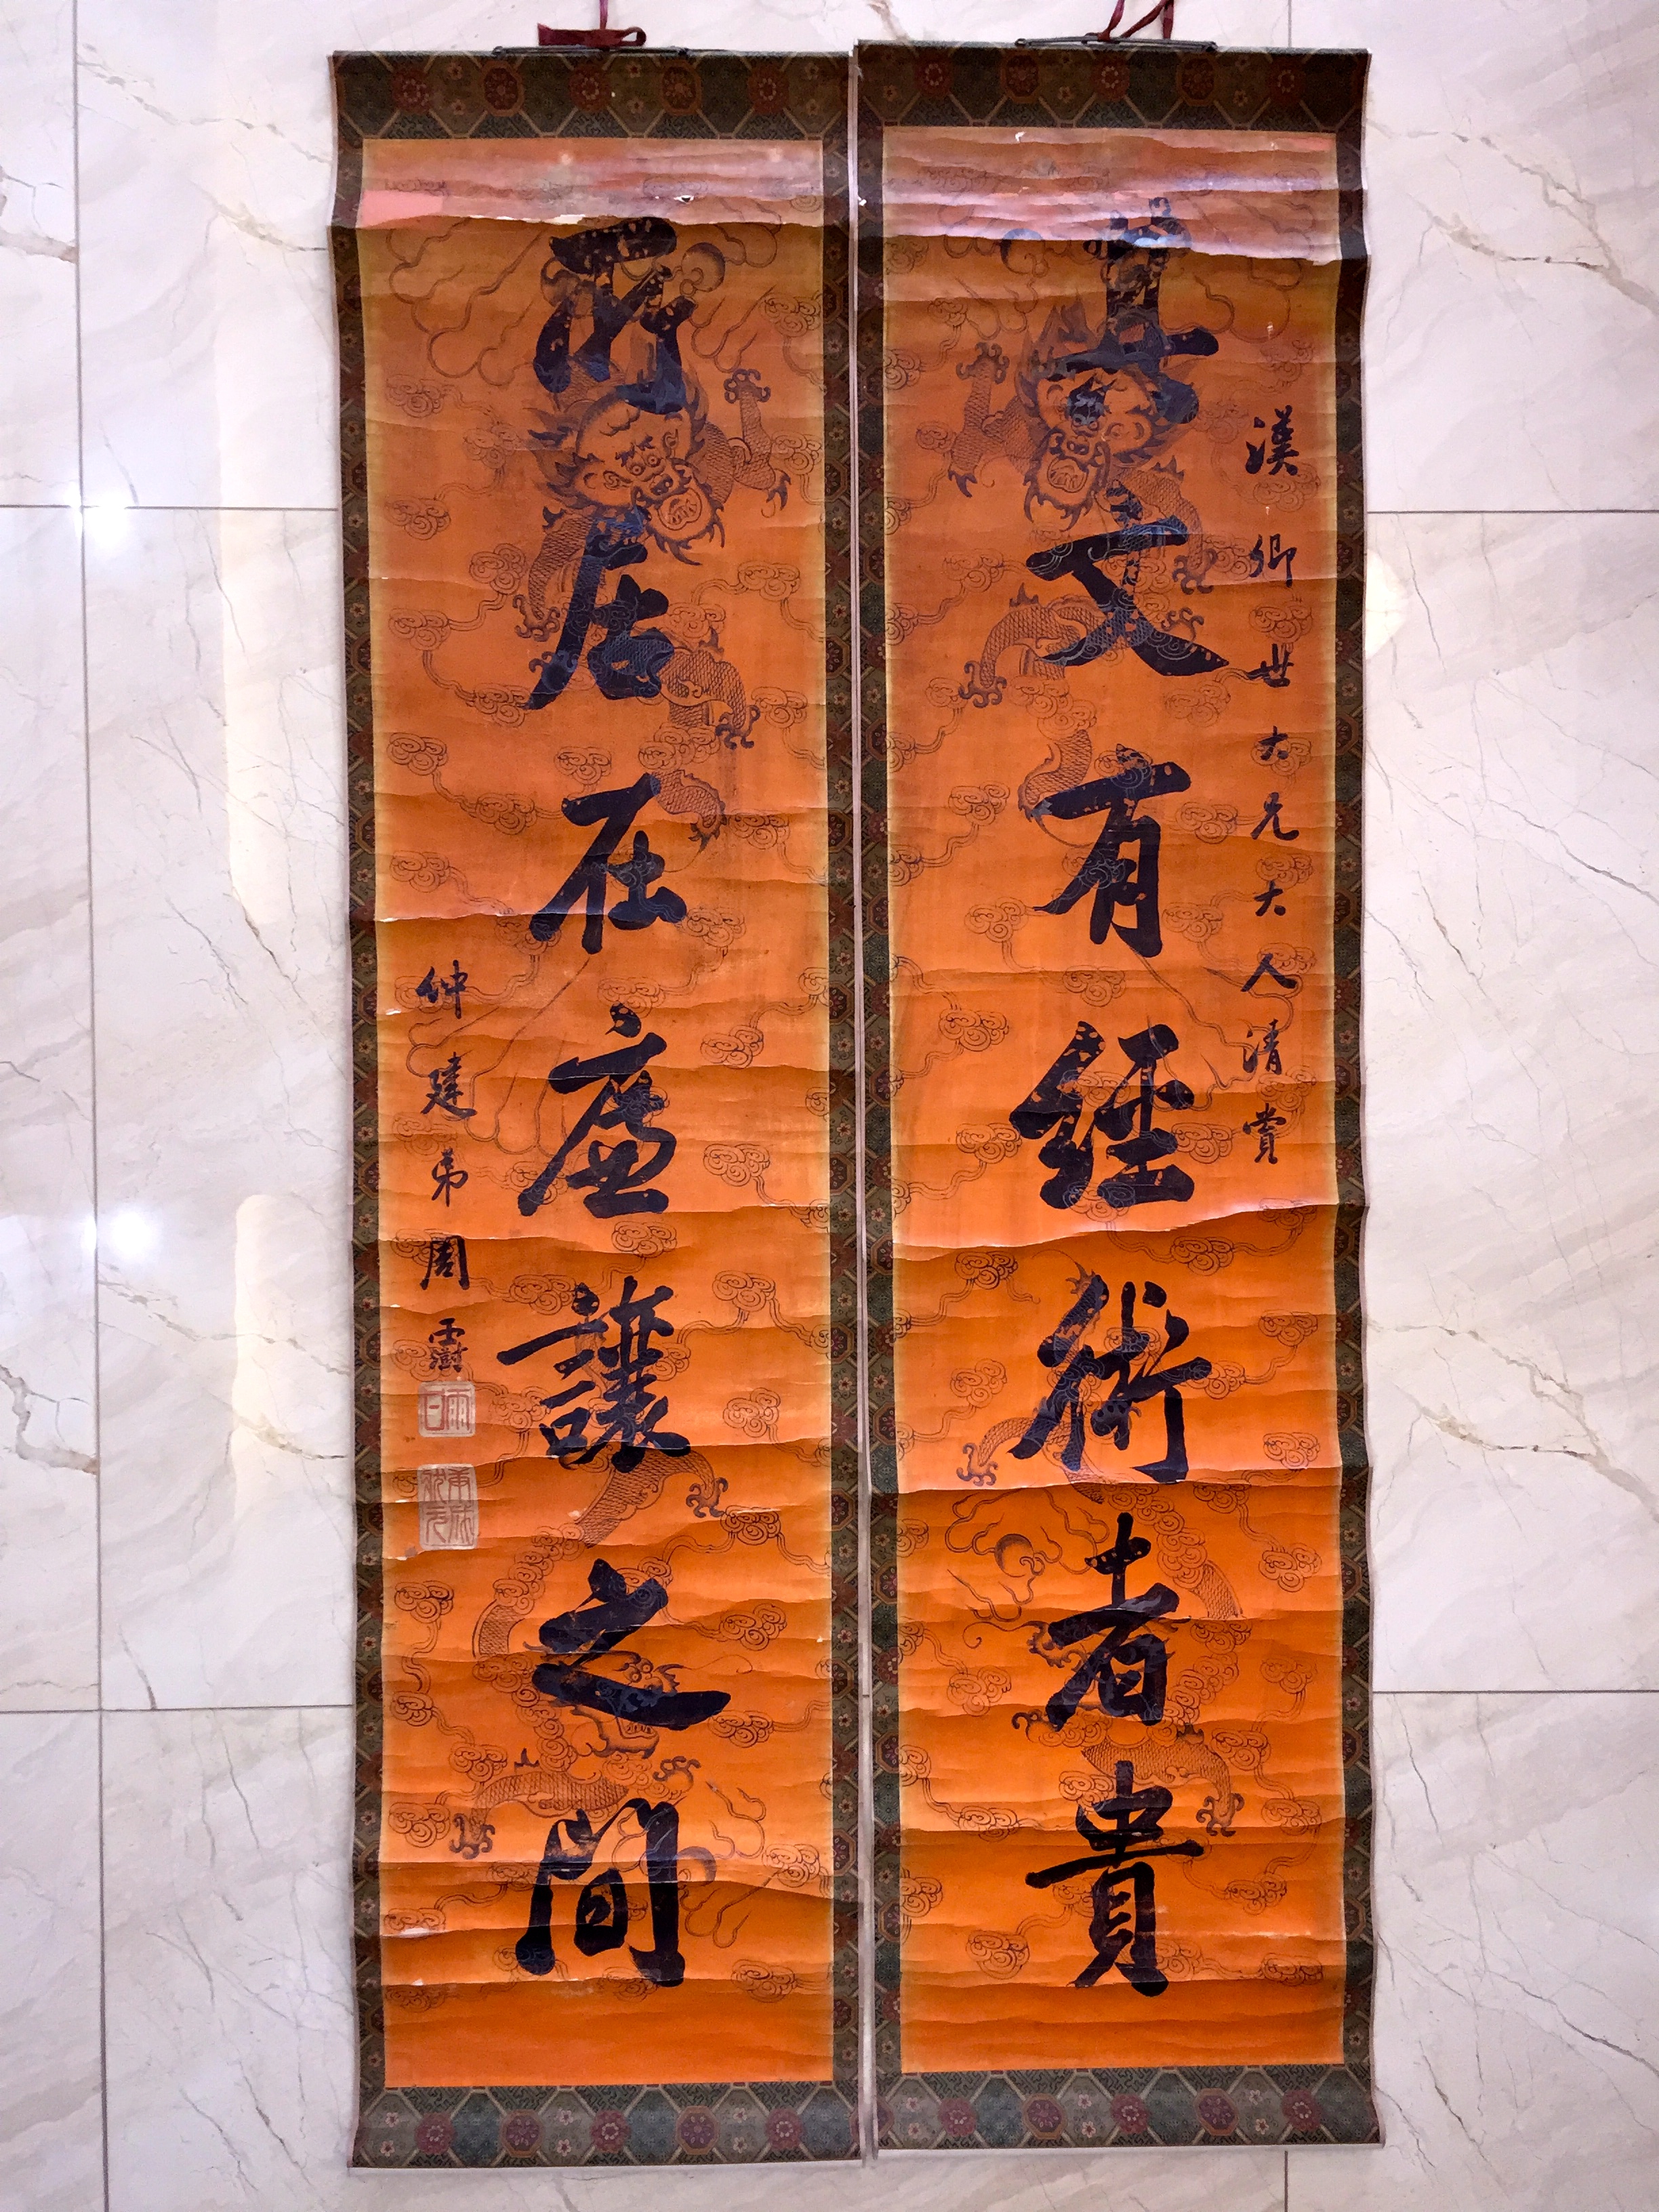 漢卿世大兄大人清賞
其文有經術者貴
所居在廉讓之間
仲建弟周